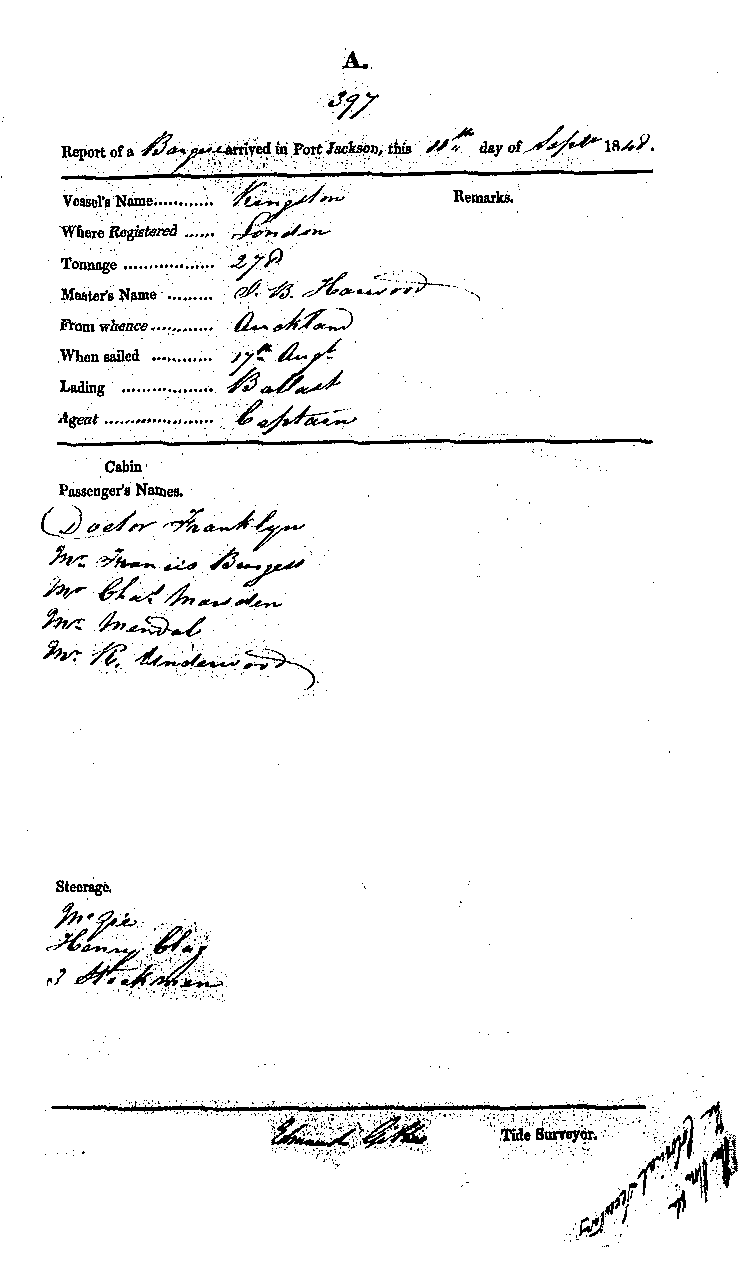 A.
397
Report of a Barque arrived in Port Jackson, this day of Septr 1848.
Vessel's Name............ Kingston Remarks.
Where Registered ...... London
Tonnage .................. 278
Master's Name ......... B. Harwood
From whence............ Auckland
When sailed ............ 17th Augt
Lading .................. Ballast
Agent ..................... Captain
Cabin
Passenger's Names.
Doctor Franklyn
Mr Francis Burgess
Mr Chas Marsden
Mr Mendal
Mr R. Underwood
Steerage.
McGie
Henry Clay
3 Stockmen
Edmund Tide Surveyor.